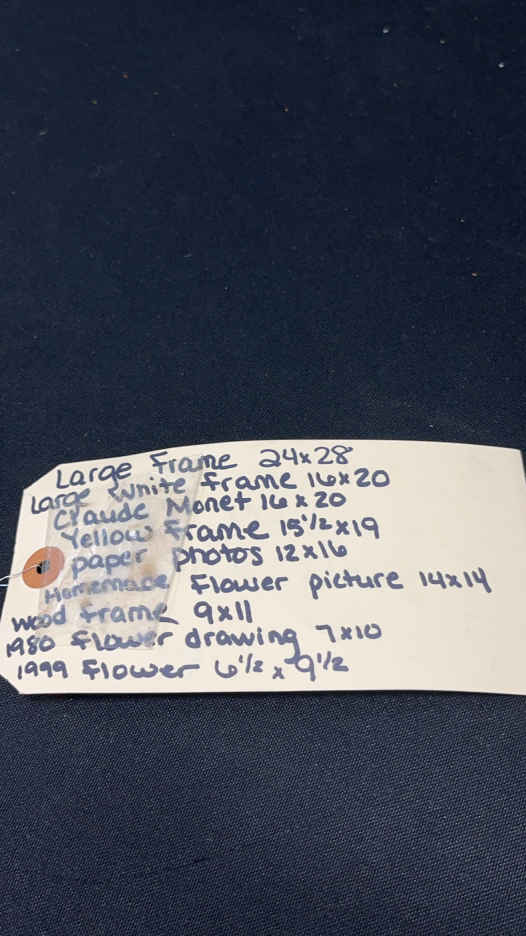 Large Frame 24x28
Large White Frame 16x20
Claude Monet 16 x 20
Yellow Frame 15 1/2 x 19
paper photos 12x16
Homemade Flower picture 14x14
Wood Frame 9x11
1980 Flower drawing 7x10
1999 Flower 6 1/2 x 9 1/2